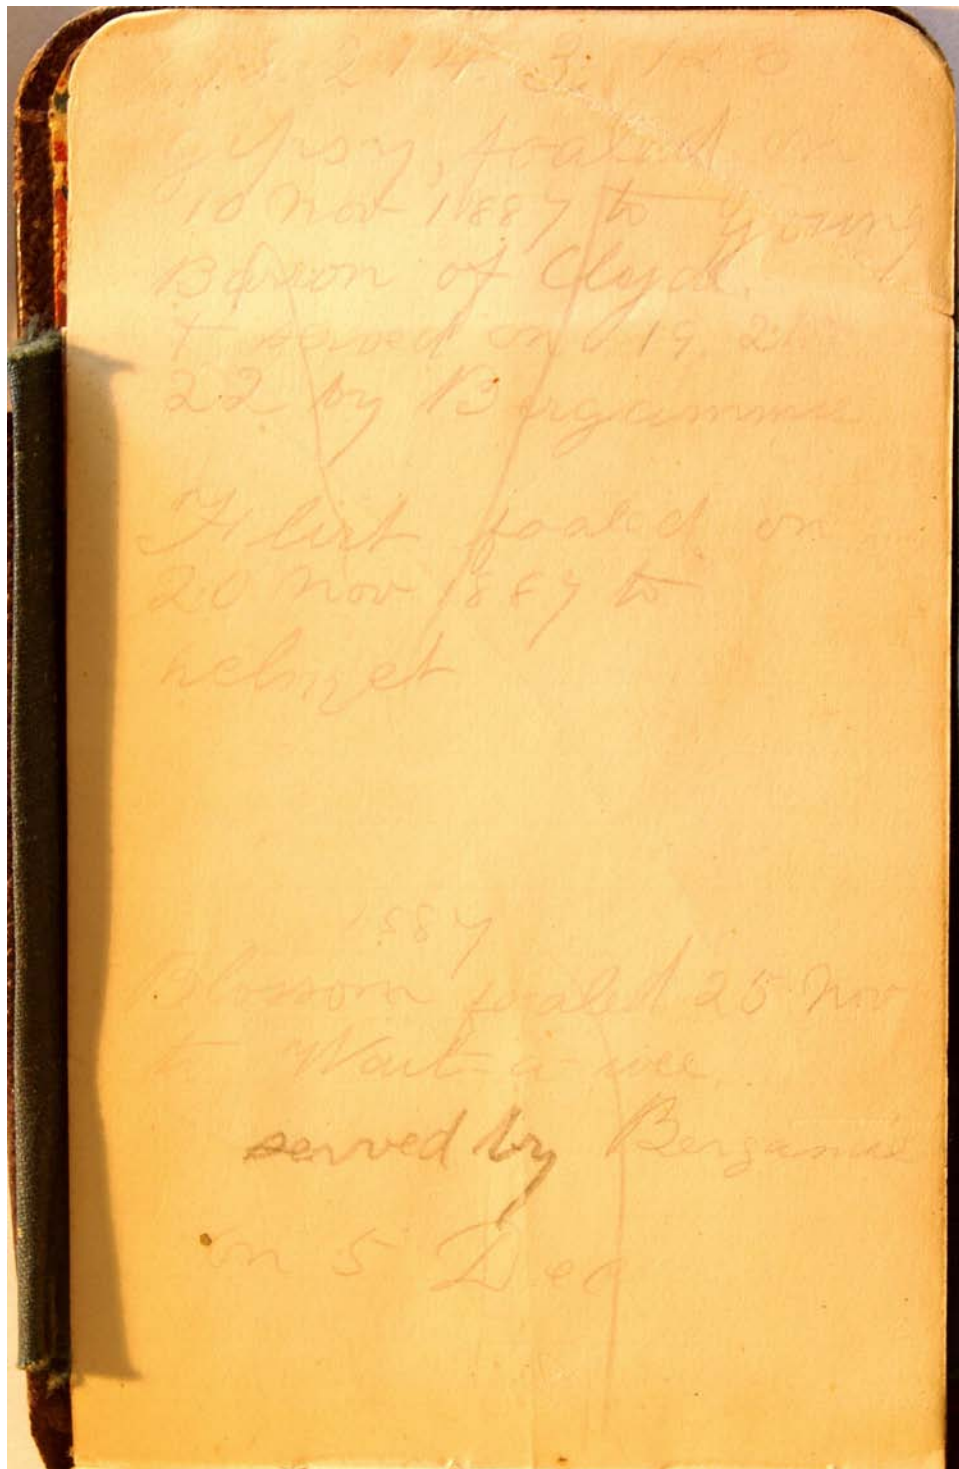 Gypsy, foaled on
10 Nov 1887 to Young
Baron of Clyde.
+ served on 19, 21
22 by Bergammie
Flirt foaled on
20 Nov 1887 to
helmet
1887
Blossom foaled 25 Nov
to Wait-a-wee
served by Bergamie
on 5 Dec